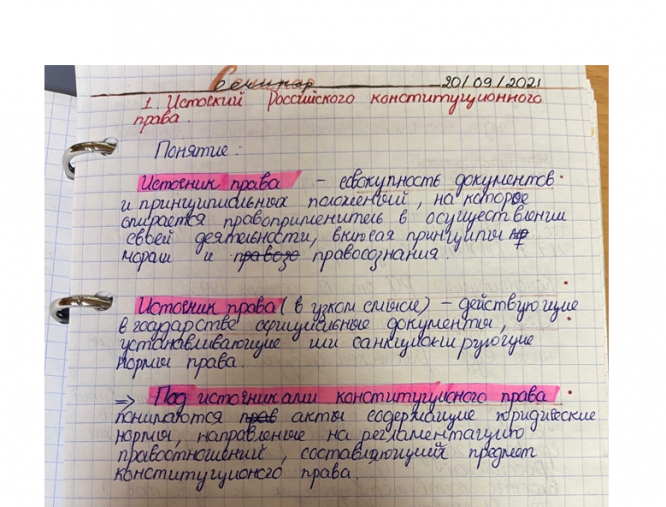 Семинар 20/09/2021
1. Истоский Российского конституционного
права.
Понятие:
Источник права – совокупность документов
и принципиальных положений, на которое
опирается правоприменитель в осуществлении
своей деятельности, включая принципы
морали и правосознания.
Источник права (в узком смысле) – действующие
в государстве официальные документы,
устанавливающие или санкционирующие
нормы права.
⇒ Под источниками конституционного права
понимаются акты содержащие юридические
нормы, направленные на регламентацию
правотношений, составляющий предмет
конституционого права.